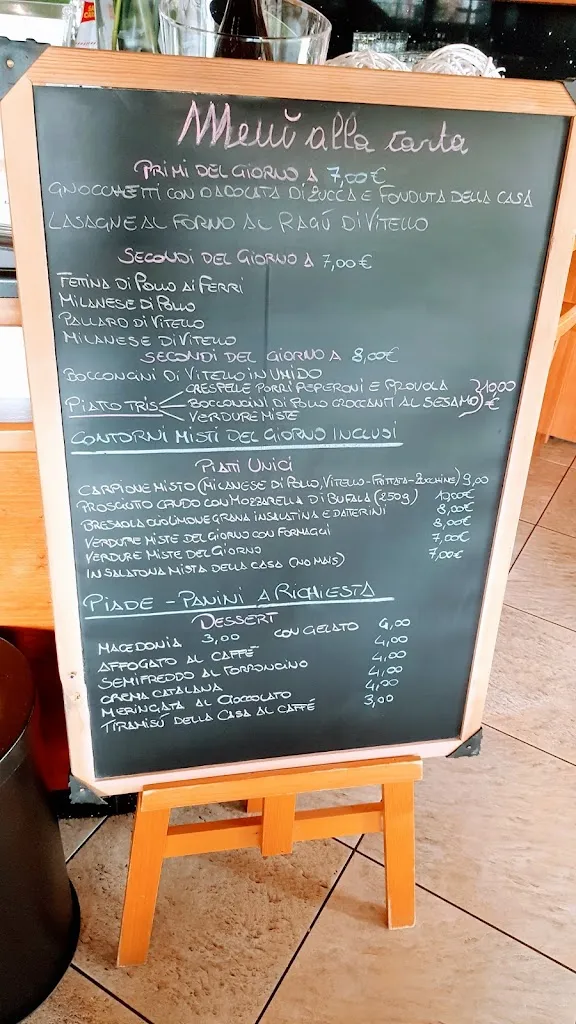 Menù alla carta
PRIMI DEL GIORNO A 7,00€
GNOCCHETTI CON DADOLATA DI ZUCCA E FONDUTA DELLA CASA
LASAGNE AL FORNO AL RAGÙ DI VITELLO
SECONDI DEL GIORNO A 7,00€
FETTINA DI POLLO AI FERRI
MILANESE DI POLLO
PAILLARD DI VITELLO
MILANESE DI VITELLO
SECONDI DEL GIORNO A 8,00€
BOCCONCINI DI VITELLO IN UMIDO
CRESPELLE PORRI PEPERONI E PROVOLA
PIATO TRIS BOCCONCINI DI POLLO CROCCANTI AL SESAMO 10,00 €
VERDURE MISTE
CONTORNI MISTI DEL GIORNO INCLUSI
PIATTI UNICI
CARPIONE MISTO (MILANESE DI POLLO, VITELLO-FRITTATA-ZUCCHINE) 9,00
PROSCIUTO CRUDO CON MOZZARELLA DI BUFALA (250g) 10,00€
BRESAOLA OLIO LIMONE GRANA INSALATINA E DATTERINI 8,00€
VERDURE MISTE DEL GIORNO CON FORMAGGI 8,00€
VERDURE MISTE DEL GIORNO 7,00€
INSALATONA MISTA DELLA CASA (NO MAIS) 7,00€
PIADE - PANINI A RICHIESTA
DESSERT
MACEDONIA 3,00 CON GELATO 4,00
AFFOGATO AL CAFFÉ 4,00
SEMIFREDDO AL TORRONCINO 4,00
CREMA CATALANA 4,00
MERINGATA AL CIOCCOLATO 4,00
TIRAMISÙ DELLA CASA AL CAFFÉ 3,00